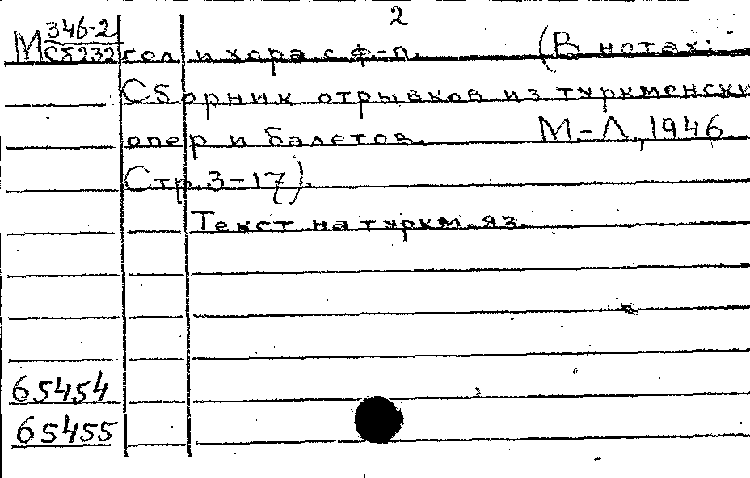 2
М 346-2
Сб232 гол и хора с ф-п. (В нотах:
Сборник отрывков из туркменски
опер и балетов. М.-Л., 1946
Стр. 3-17).
Текст на туркм. яз.
65454
65455